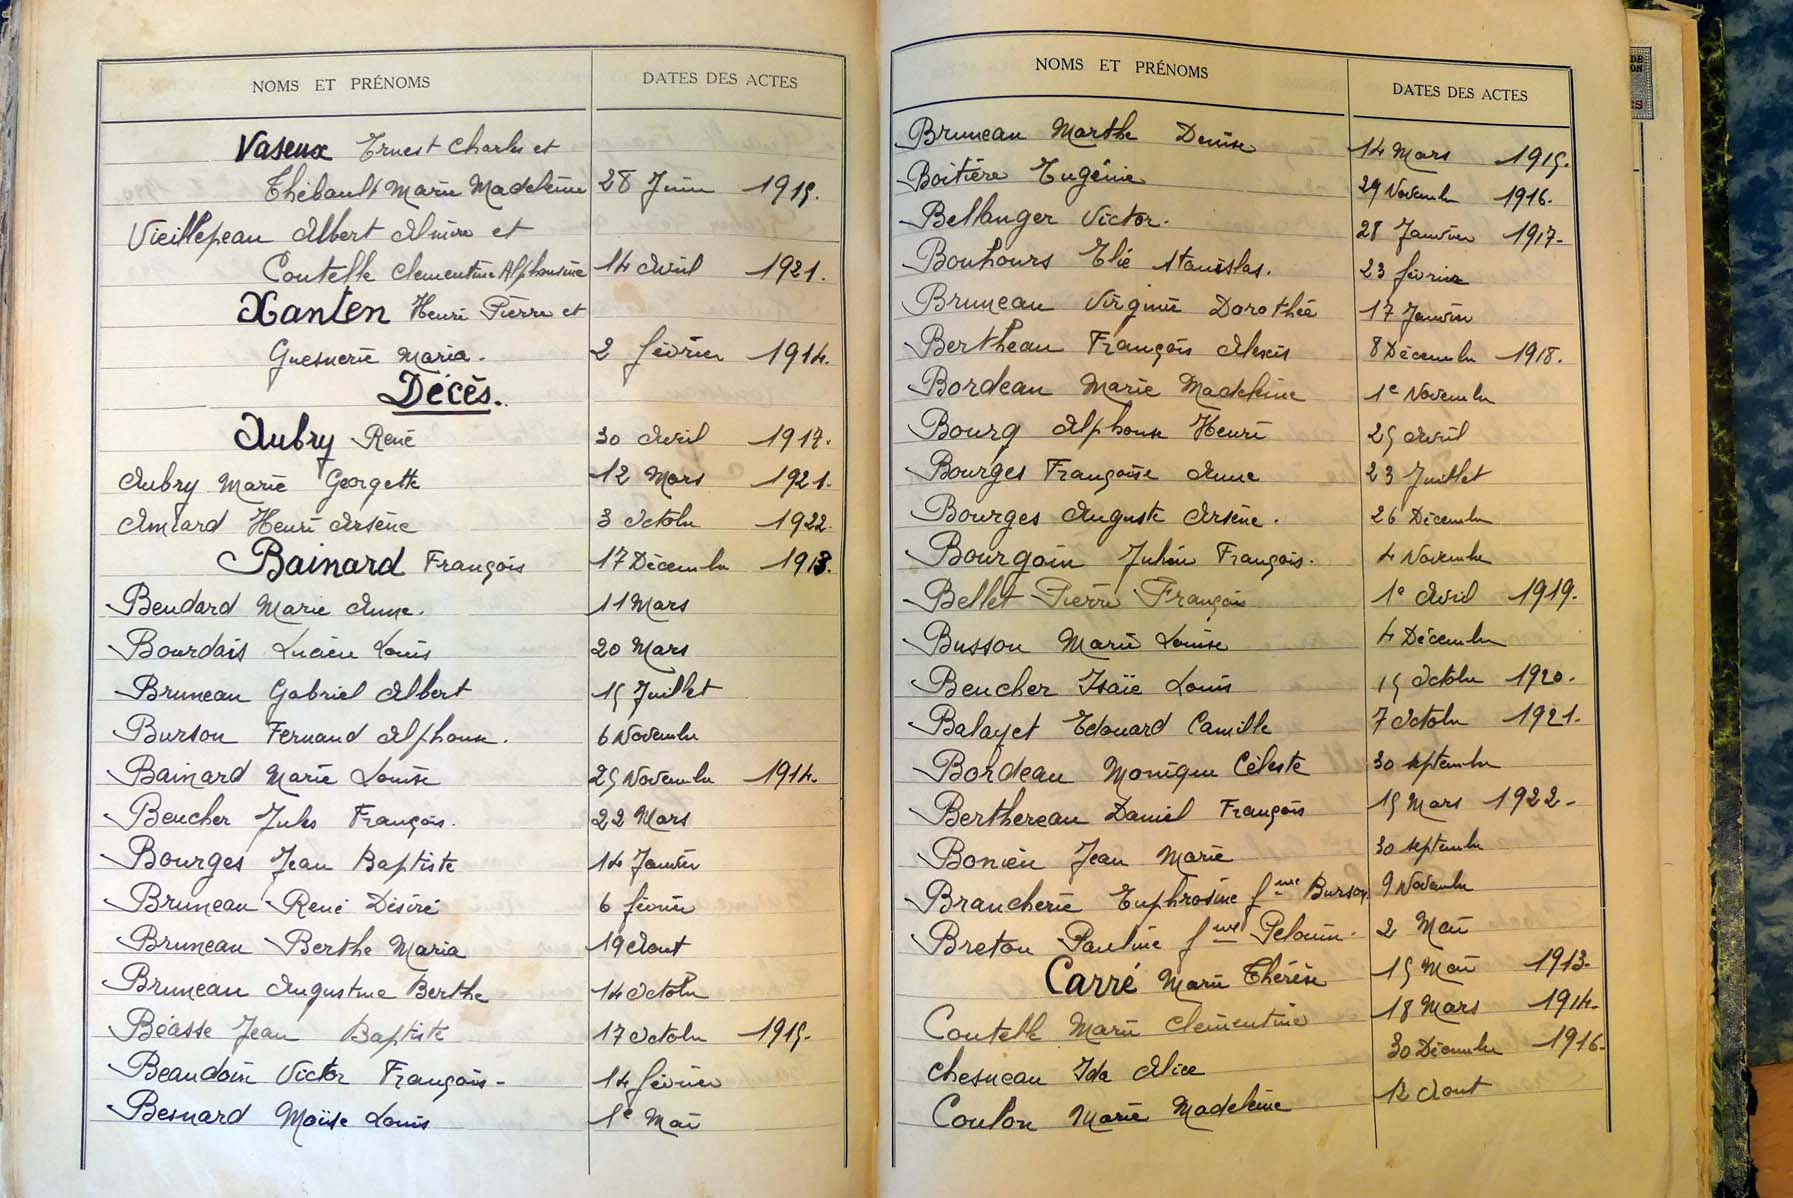 NOMS ET PRÉNOMS DATES DES ACTES
Vaseux Ernest Charles et
Thébault Marie Madeleine 28 Juin 1915.
Vieillepeau Albert Almire et
Coutelle Clementine Alphonsine 14 Avril 1921.
Xanten Henri Pierre et
Guesnerie Maria. 2 février 1914.
Décès.
Aubry René 30 Avril 1917.
Aubry Marie Georgette 12 Mars 1921.
Amiard Henri Arsène 3 Octobre 1922.
Bainard François 17 Décembre 1913.
Beudard Marie Anne. 11 Mars
Bourdais Lucien Louis 20 Mars
Bruneau Gabriel Albert 15 Juillet
Burson Fernand Alphonse. 6 Novembre
Bainard Marie Louise 25 Novembre 1914.
Beucher Jules François. 22 Mars
Bourges Jean Baptiste 14 Janvier
Bruneau René Désiré 6 février
Bruneau Berthe Maria 19 Aout
Bruneau Augustine Berthe 14 Octobre
Béasse Jean Baptiste 17 Octobre 1915.
Beaudoin Victor François - 14 février
Besnard Moïse Louis 1e Mai
NOMS ET PRÉNOMS DATES DES ACTES
Bruneau Marthe Denise 14 Mars 1915.
Boitière Eugénie 29 Novembre 1916.
Bellanger Victor. 28 Janvier 1917-
Bouhours Elie Stanislas. 23 février
Bruneau Virginie Dorothée 17 Janvier
Bertheau François Alexis 8 Décembre 1918.
Bordeau Marie Madeleine 1e Novembre
Bourg Alphonse Henri 25 Avril
Bourges Françoise Anne 23 Juillet
Bourges Auguste Arsène. 26 Décembre
Bourgoin Julien François. 4 Novembre
Bellet Pierre François 1e Avril 1919.
Busson Marie Louise 4 Décembre
Beucher Isaïe Louis 15 Octobre 1920.
Balayet Edouard Camille 7 Octobre 1921.
Bordeau Monique Céleste 30 septembre
Berthereau Daniel François 15 Mars 1922-
Bonien Jean Marie 30 septembre
Brancherie Euphrosine fme Burson 9 Novembre
Breton Pauline fme Pelouin. 2 Mai
Carré Marie Thérèse 15 Mai 1913.
Coutelle Marie Clementine 18 Mars 1914.
Chesneau Ida Alice 30 Décembre 1916.
Coulon Marie Madeleine 12 Aout